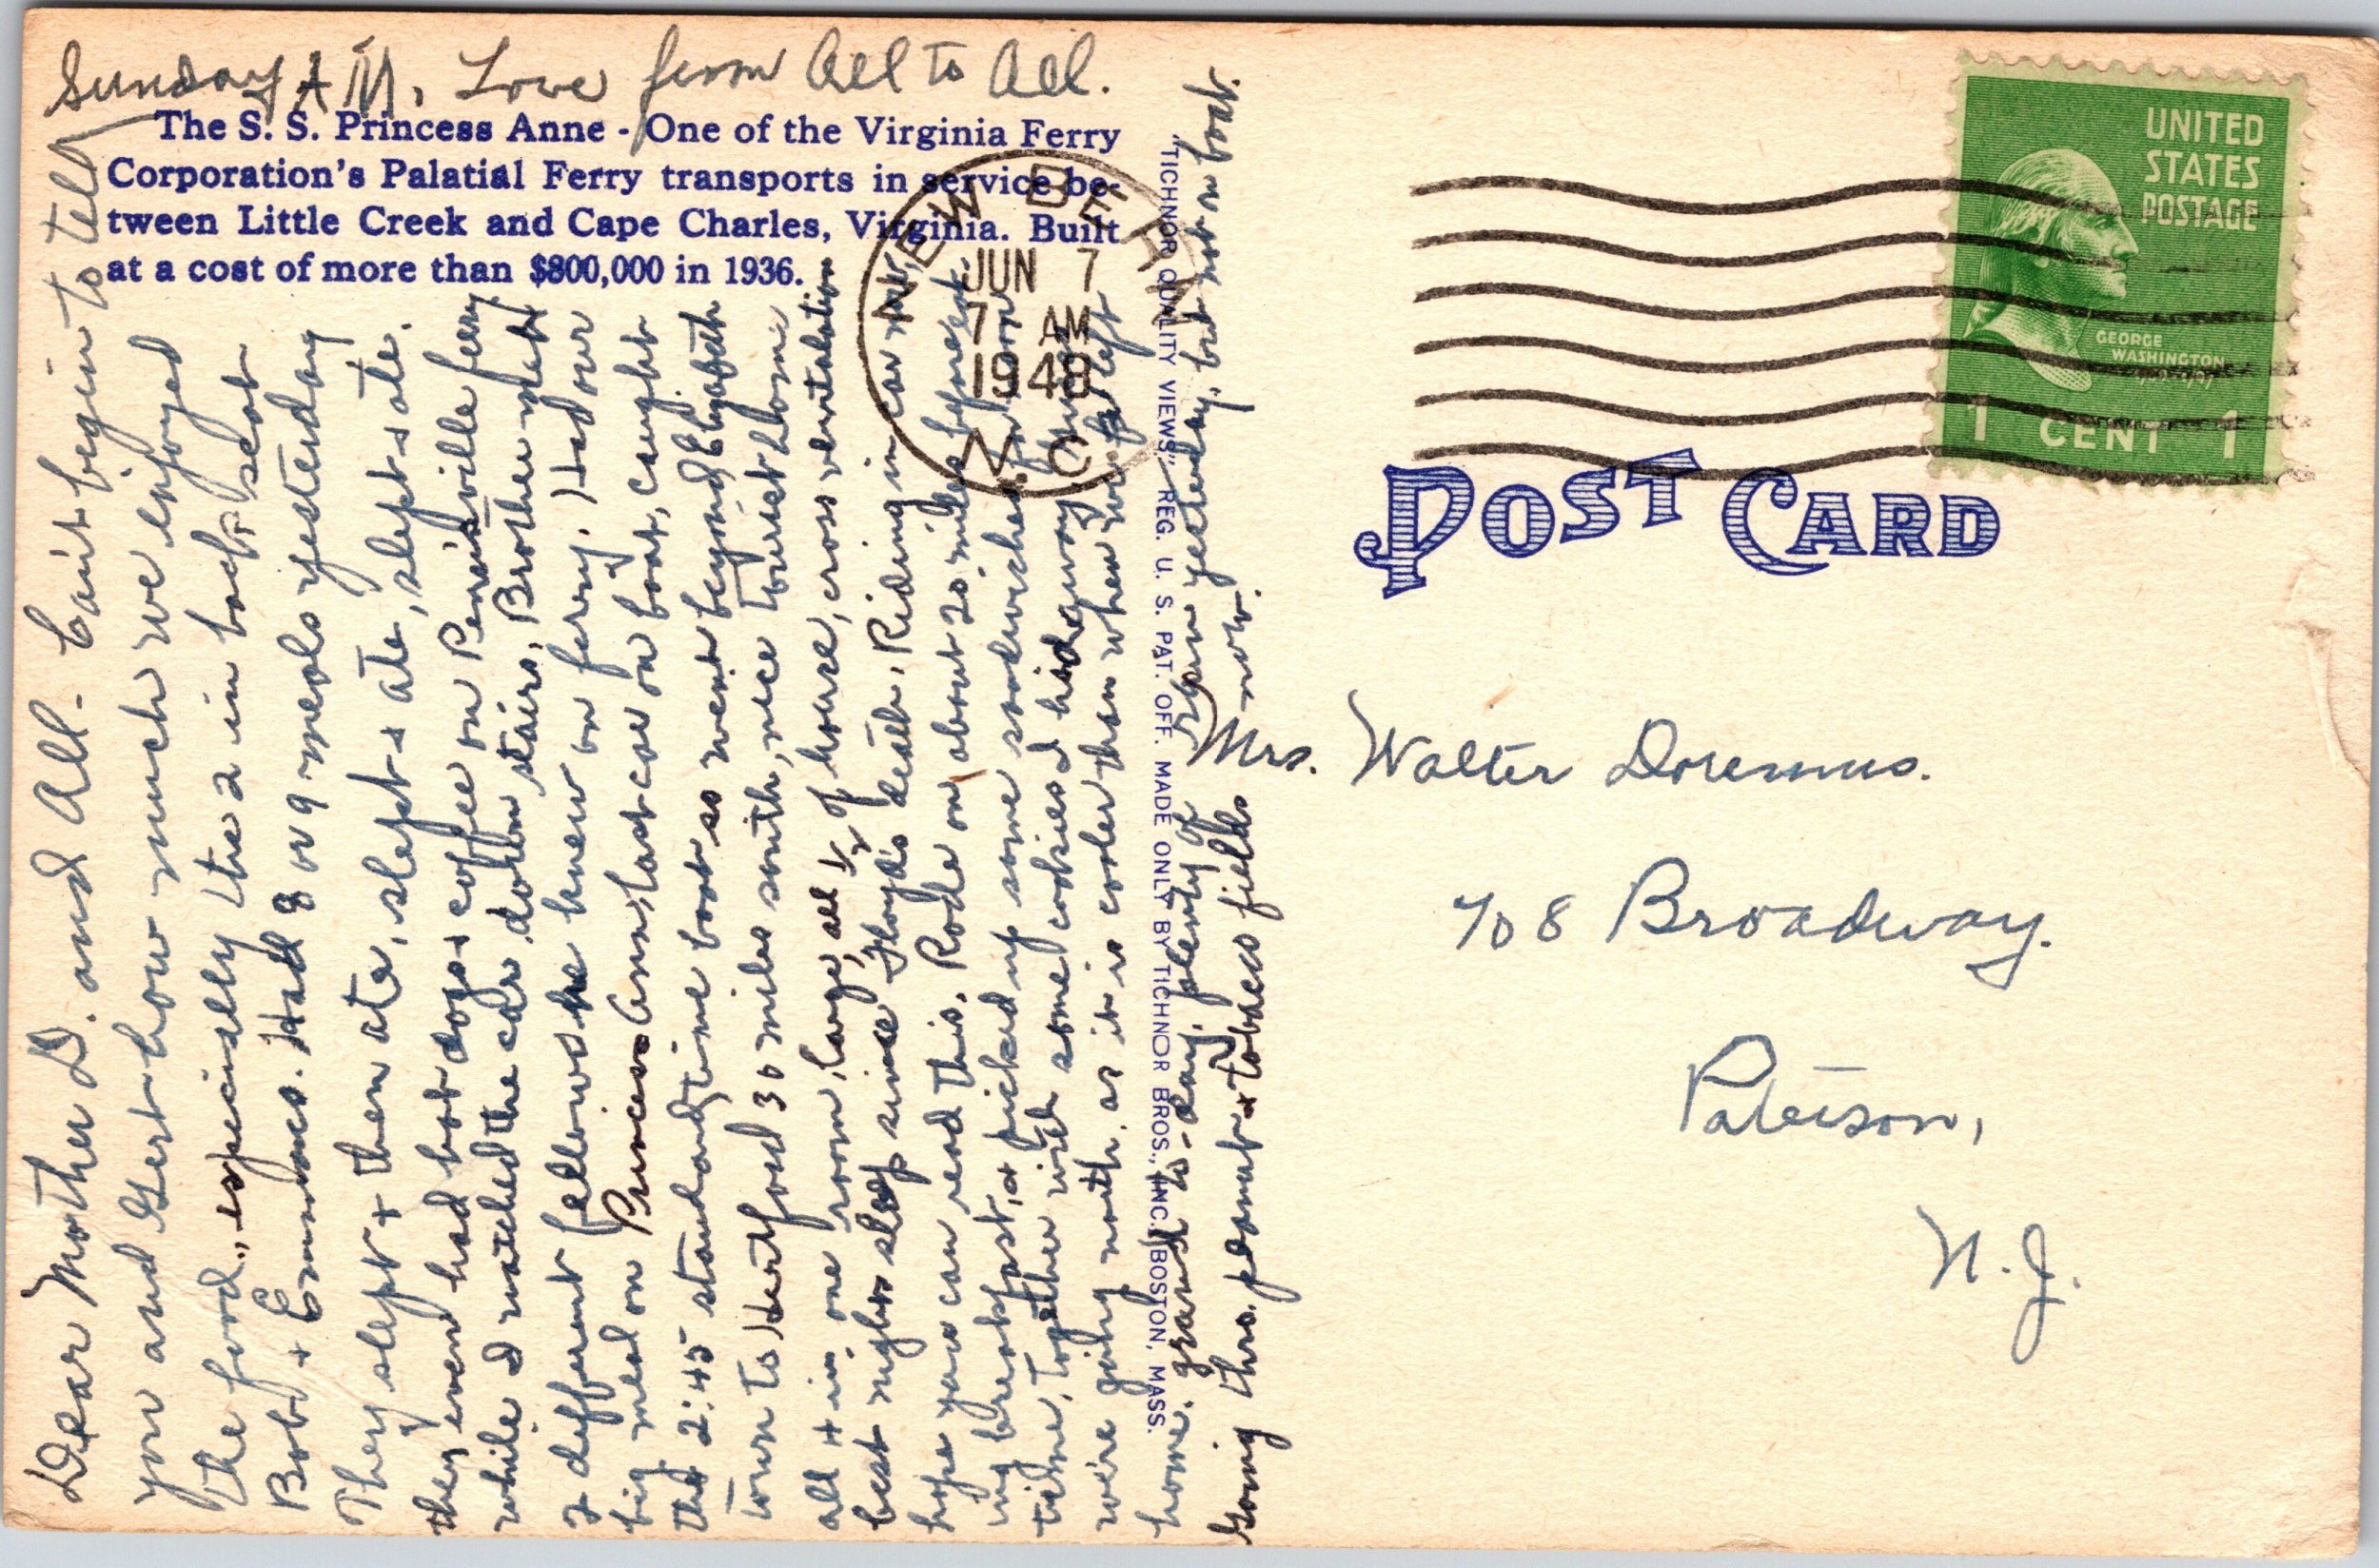 Sunday A.M. Love from All to All.
The S. S. Princess Anne - One of the Virginia Ferry
Corporation's Palatial Ferry transports in service be-
tween Little Creek and Cape Charles, Virginia. Built
at a cost of more than $800,000 in 1936.
Dear Mother D. and All - Can't begin to tell
you and Gert how much we enjoyed
the food, especially the 2 in back seat
Bob + Emma. Had 8 or 9 meals yesterday
They slept + then ate, slept + ate, slept + ate.
they even had hot dogs + coffee on Pennsville ferry
while I watched the car down stairs. Brother met
2 different fellows he knew on ferry. Had our
big meal on Princess Ann, last car on boat, caught
the 2:45 standard time boat so went beyond Eliz
town to Hertford 30 miles south, nice tourist home
all 4 in one room, large, all 1/2 of house, cross ventalation
best nights sleep since Floyd's death. Riding in car now,
hope you can read this. Rode on about 20 miles before eat-
ing breakfast, + picked up some sandwiches for noon
time, together with some cookies I hid away
we're going north, as it is cooler than when we left
home, grand to-day, plenty of
Rain yesterday, but not on boat.
Going thro. peanut + tobacco fields now.
NEW BERN
JUN 7
7 AM
1948
N. C.
"TICHNOR QUALITY VIEWS," REG. U. S. PAT. OFF. MADE ONLY BY TICHNOR BROS., INC., BOSTON, MASS.
UNITED
STATES
POSTAGE
GEORGE
WASHINGTON
1 CENT 1
POST CARD
Mrs. Walter Doremus.
708 Broadway.
Paterson,
N.J.